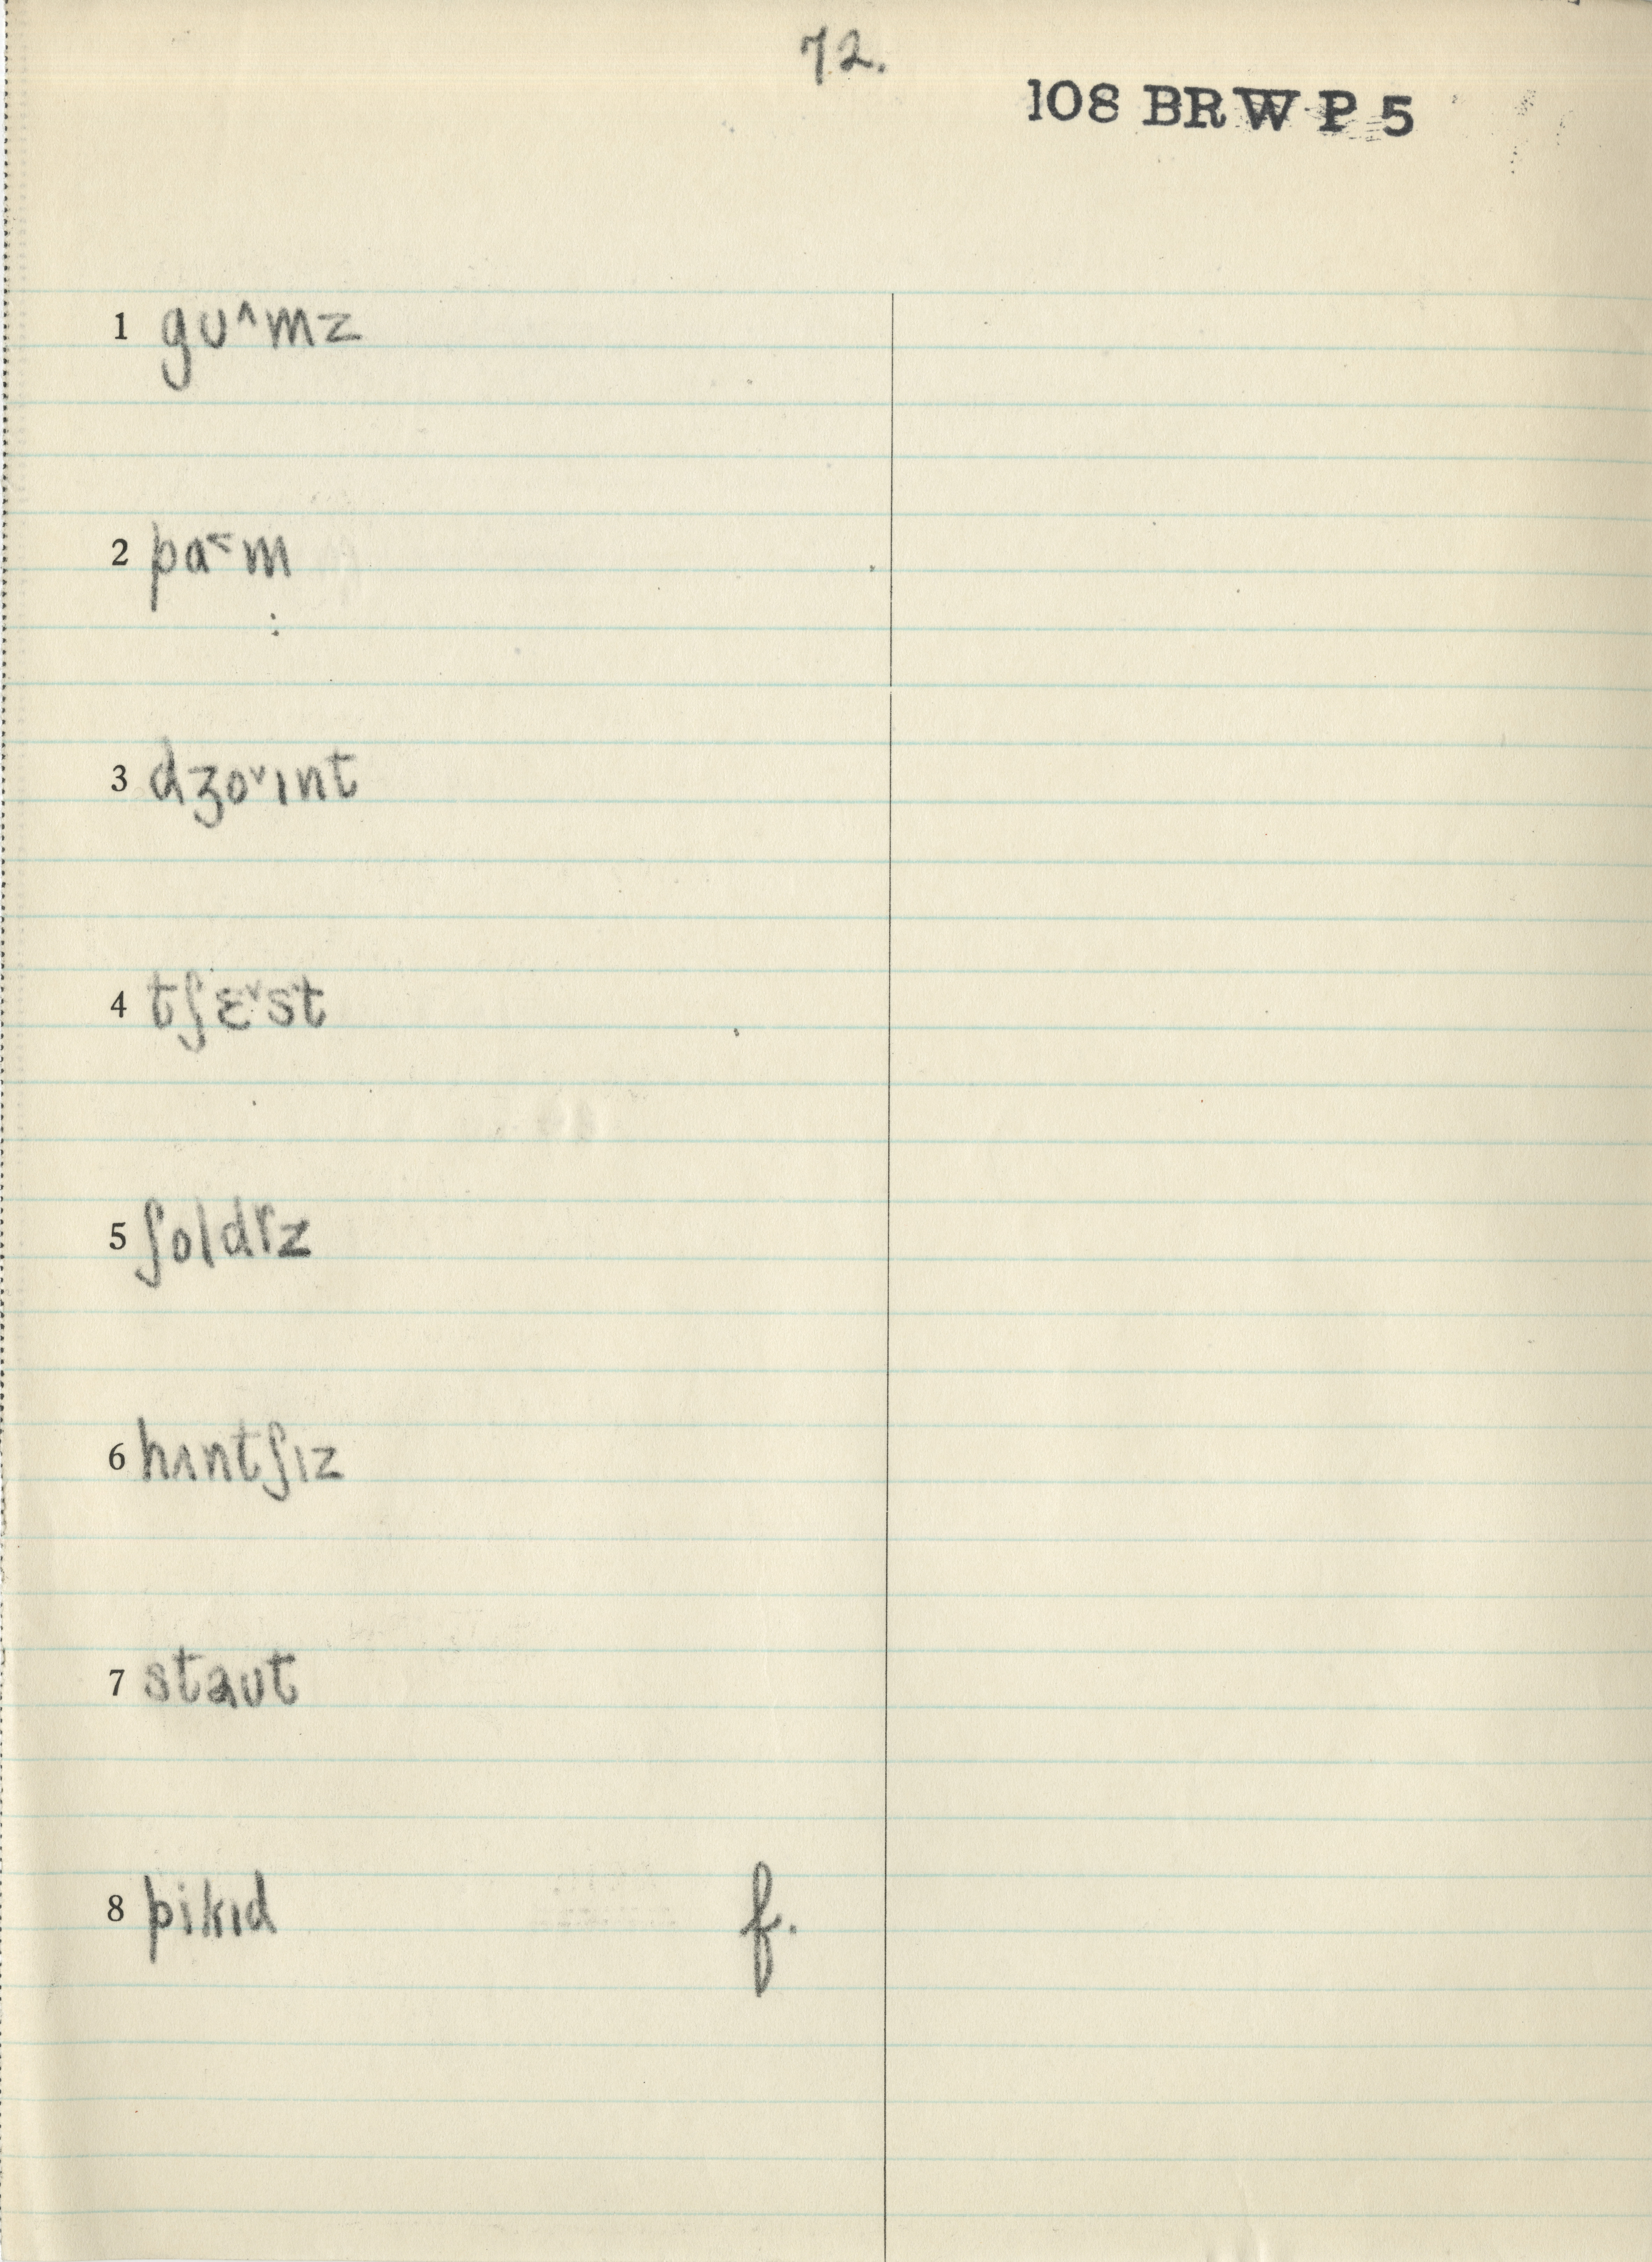 72.
108 BRW P 5
1 gʊ˄mz
2 pɑ˂m
3 dʒo˅ɪnt
4 tʃɛ˅st
5 ʃoldɚz
6 hʌntʃɪz
7 staʊt
8 pikɪd f.